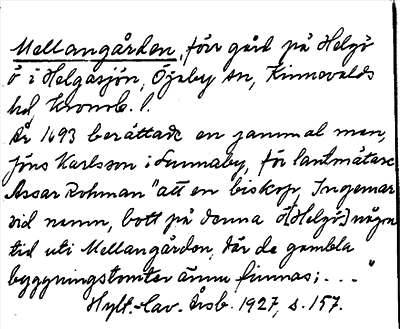 Mellangården, förr gård på Helgö
ö i Helgasjön, Öjaby sn, Kinnevalds
hd, Kronob. l.
År 1693 berättade en gammal man,
Jöns Karlsson i Sunnaby, för lantmätare
Assar Rohman "att en biskop, Ingemar
vid namn, bott på denna ö [Helgö] någon
tid uti Mellangården, där de gambla
byggningstomter ännu finnas; ... "
Hylt.-Cav. Årsb. 1927, s. 157.